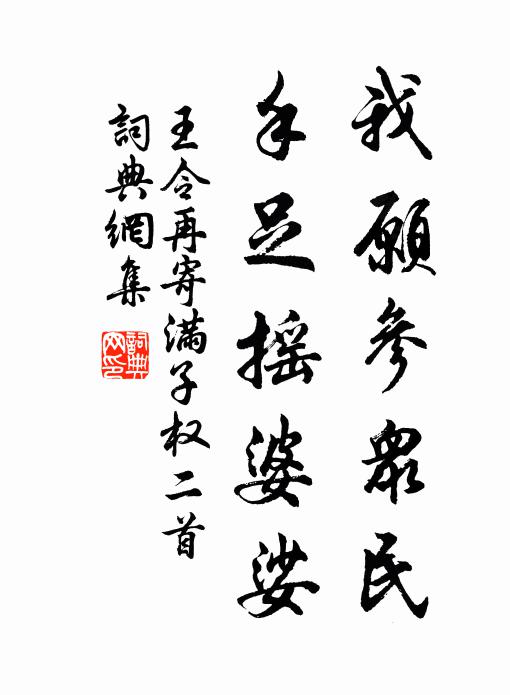 我願參眾民
手足摇婆娑
王令再寄滿子权二首
詞典網集
詞典
网印